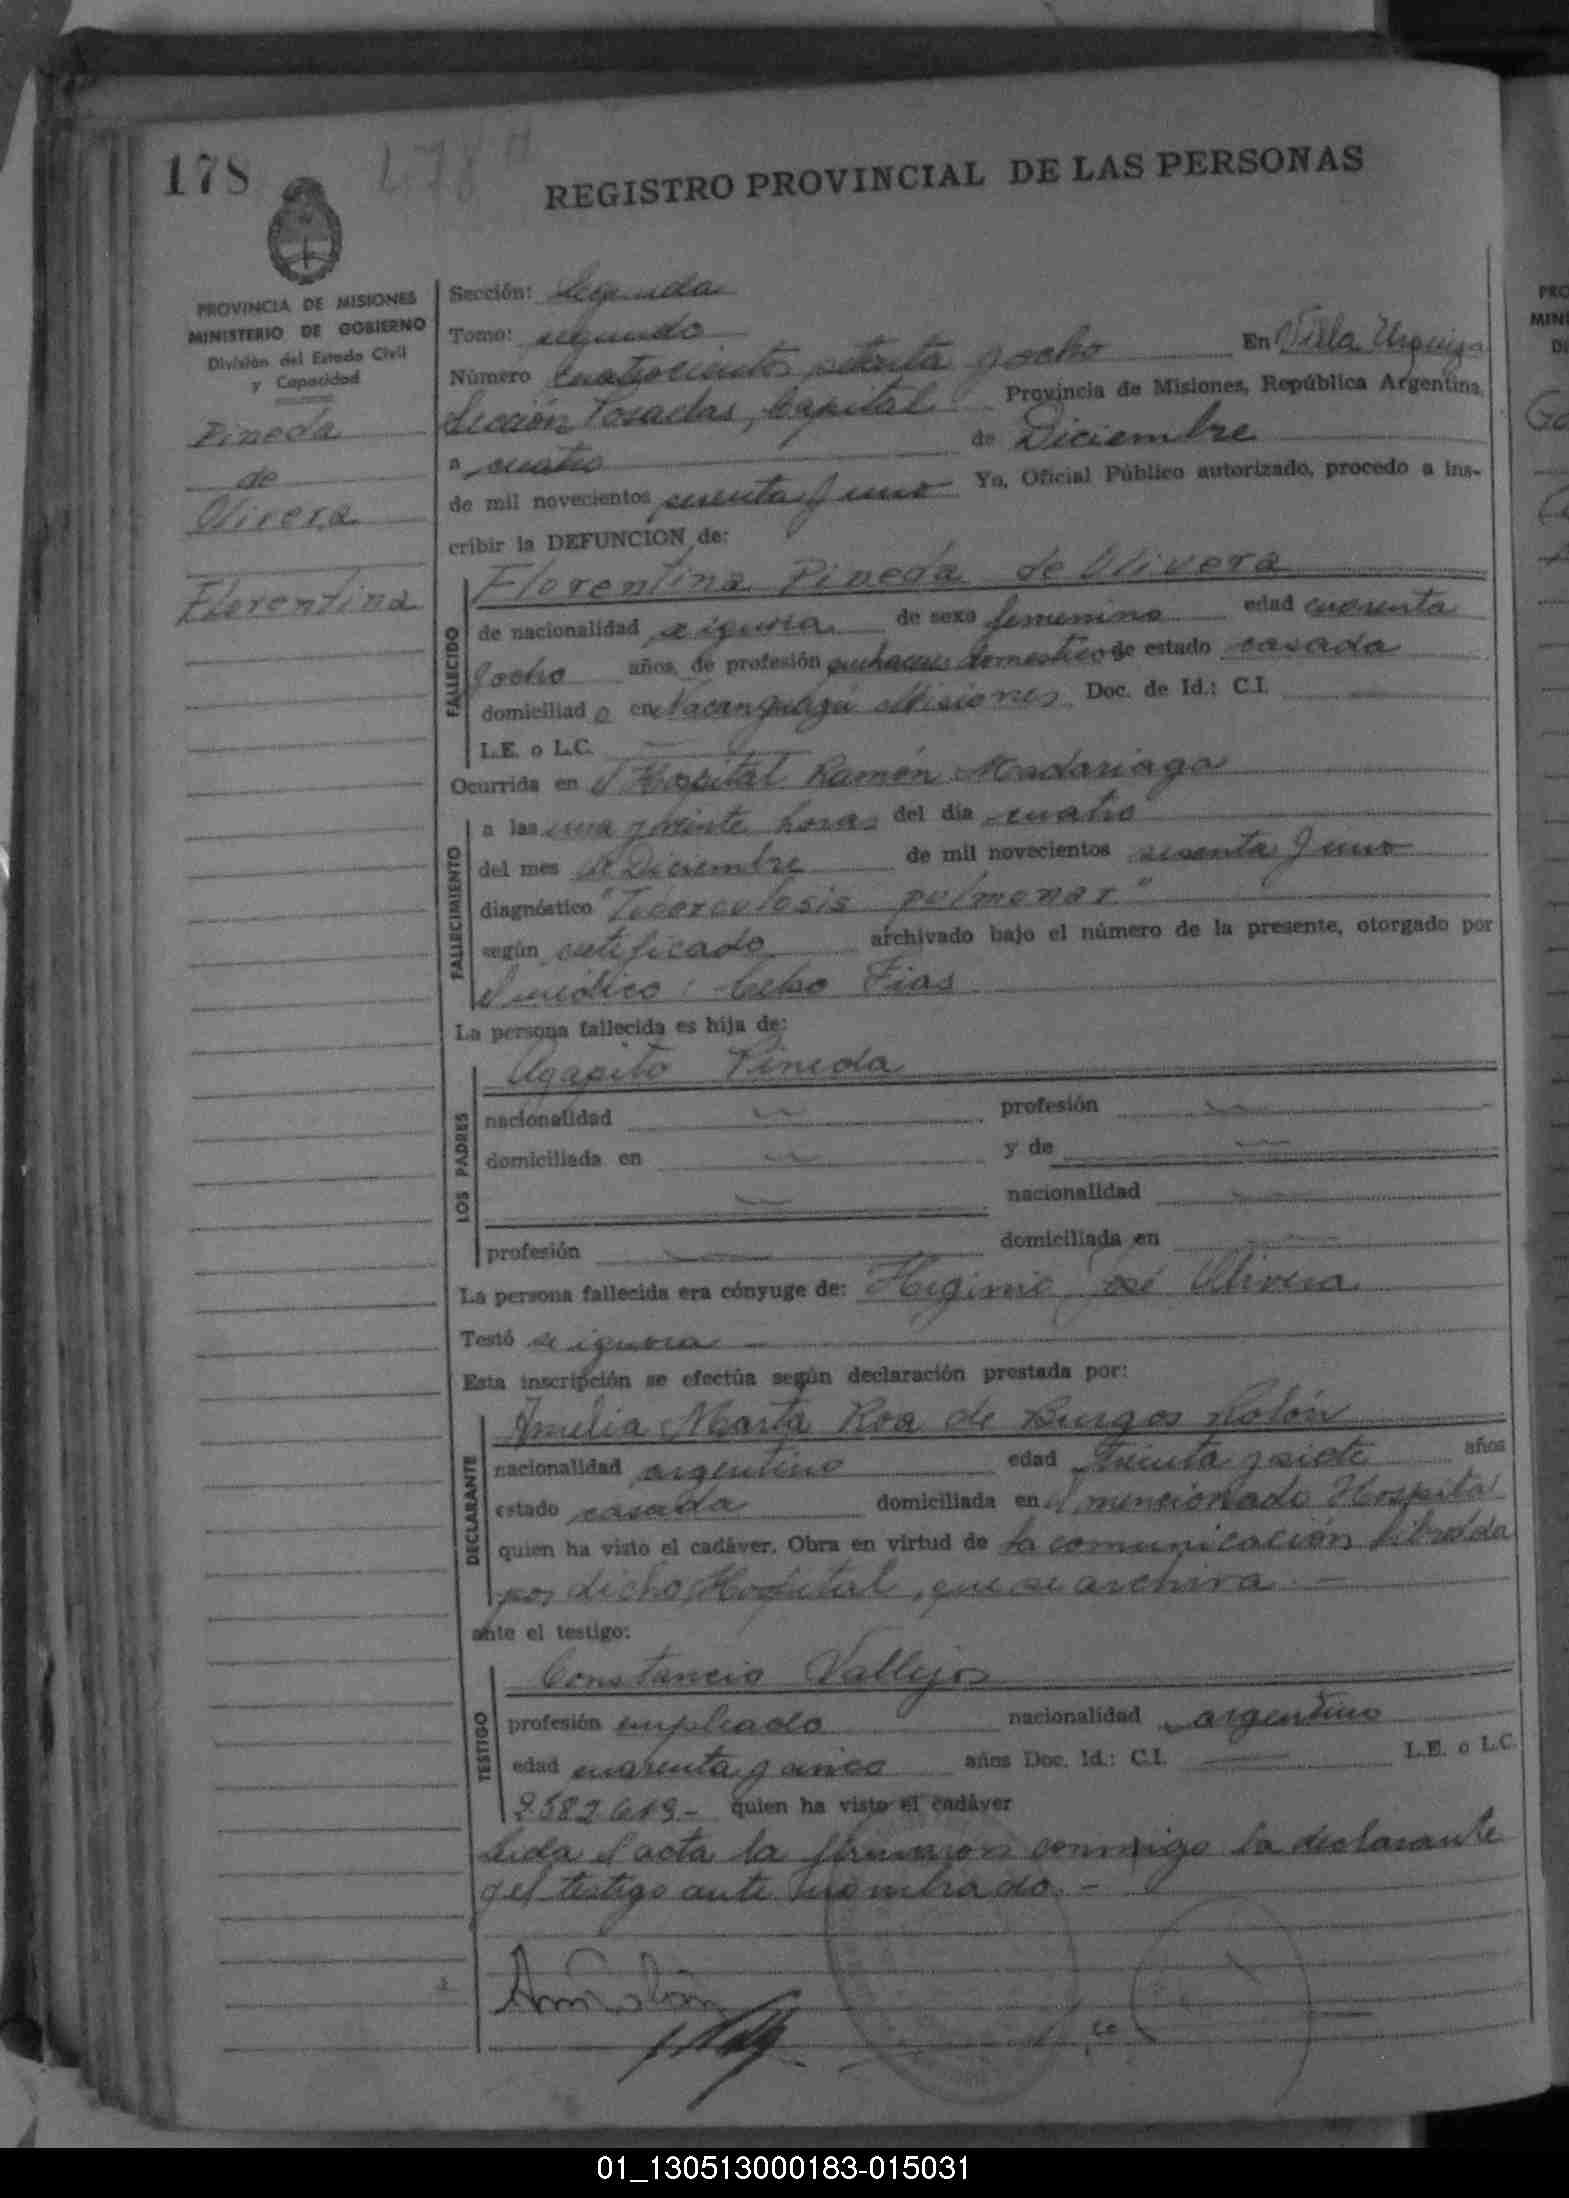 178
478
REGISTRO PROVINCIAL DE LAS PERSONAS
PROVINCIA DE MISIONES
MINISTERIO DE GOBIERNO
División del Estado Civil
y Capacidad
Pineda
de
Olivera
Florentina
Sección: Segunda
Tomo: segundo
Número cuatrocientos setenta y ocho En Villa Urquiza
Sección Posadas, Capital Provincia de Misiones, República Argentina,
a cuatro de Diciembre
de mil novecientos sesenta y uno Yo, Oficial Público autorizado, procedo a ins-
cribir la DEFUNCION de:
FALLECIDO
Florentina Pineda de Olivera
de nacionalidad se ignora de sexo femenino edad cuarenta
y ocho años, de profesión quehaceres domesticos de estado casada
domiciliad o en Ñacanguazú Misiones Doc. de Id.: C.I.
L.E. o L.C.
Ocurrida en el Hospital Ramón Madariaga
FALLECIMIENTO
a las una y veinte horas del día cuatro
del mes de Diciembre de mil novecientos sesenta y uno
diagnóstico "Tuberculosis pulmonar"
según certificado archivado bajo el número de la presente, otorgado por
el médico: Celso Fias
La persona fallecida es hija de:
LOS PADRES
Agapito Pineda
nacionalidad profesión
domiciliada en y de
nacionalidad
profesión domiciliada en
La persona fallecida era cónyuge de: Higinio José Olivera
Testó se ignora
Esta inscripción se efectúa según declaración prestada por:
DECLARANTE
Amelia Marta Roa de Burgos Rolón
nacionalidad argentino edad treinta y siete años
estado casada domiciliada en el mencionado Hospital
quien ha visto el cadáver. Obra en virtud de la comunicación librada
por dicho Hospital, que se archiva.-
ante el testigo:
TESTIGO
Constancio Vallejos
profesión empleado nacionalidad argentino
edad cuarenta y cinco años Doc. Id.: C.I. L.E. o L.C.
2.582.619- quien ha visto el cadáver
Leida el acta la firmaron conmigo la declarante
y el testigo ante nombrado.-
PRO
MINI
DI
01_130513000183-015031